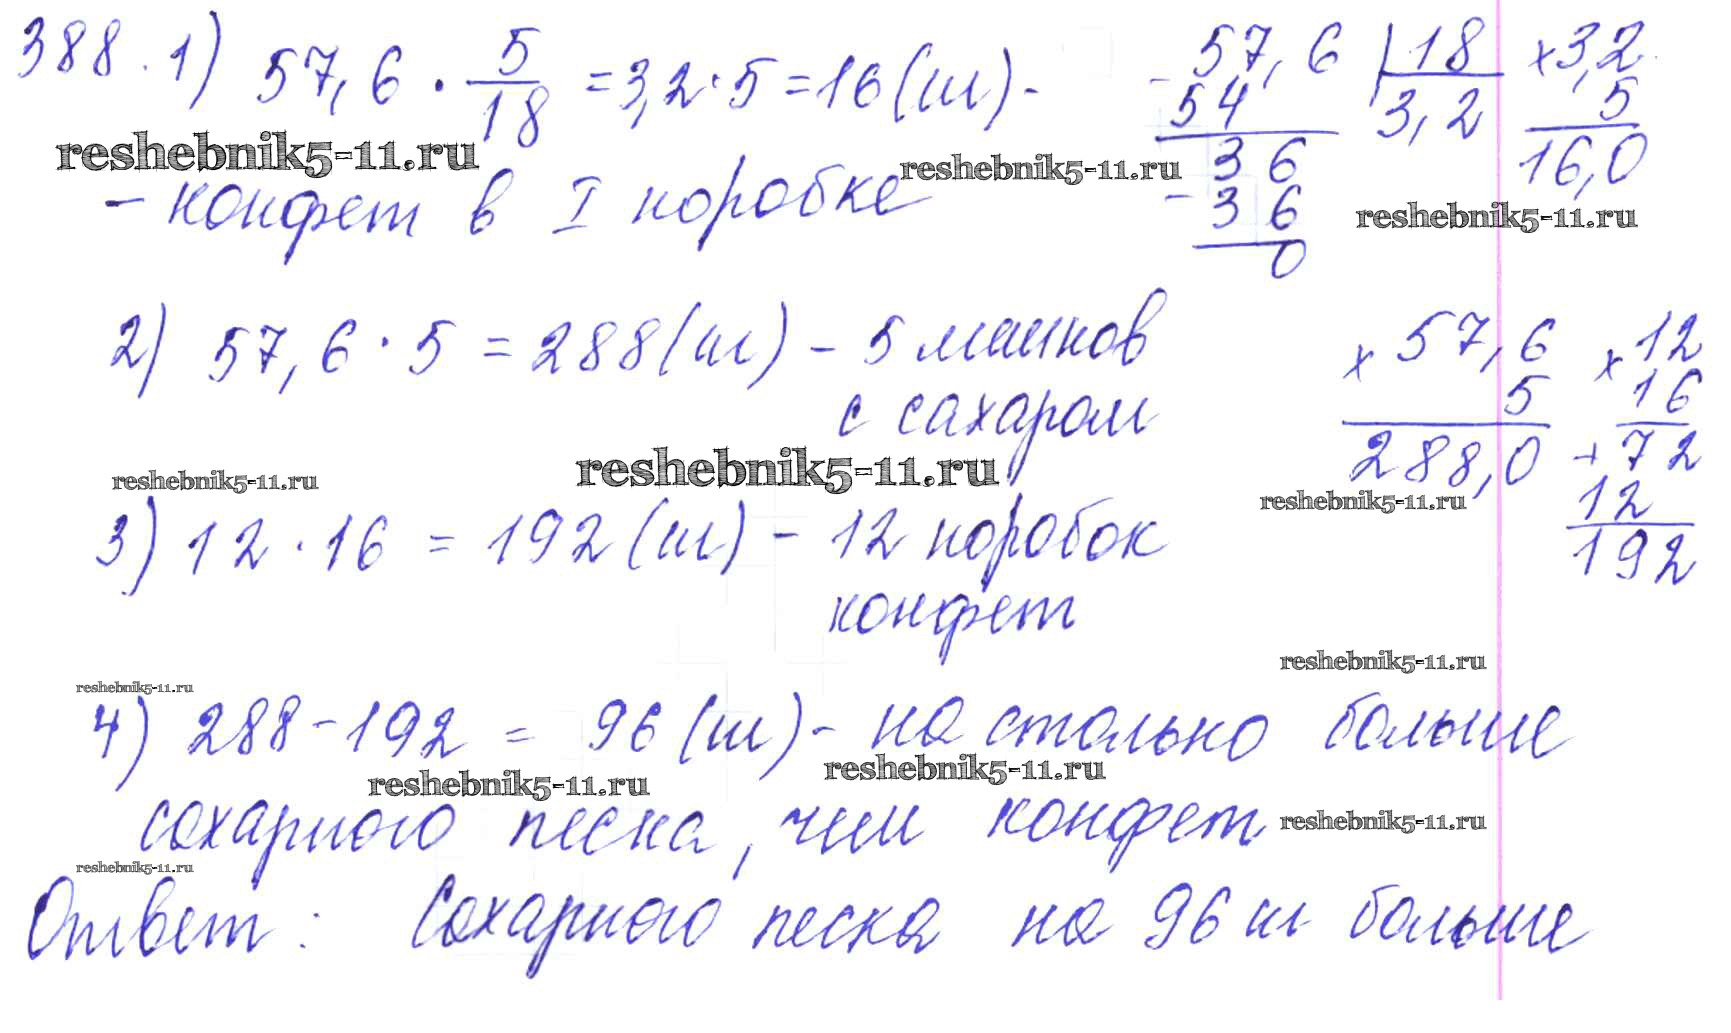 388. 1) 57,6 · 5/18 = 3,2 · 5 = 16 (ш) -
- конфет в I коробке
57,6 | 18
- 54
3,2
36
- 36
0
× 3,2
5
16,0
reshebnik5-11.ru
reshebnik5-11.ru
reshebnik5-11.ru
2) 57,6 · 5 = 288 (ш) - 5 мешков
с сахаром
× 57,6
5
288,0
× 12
16
+ 72
12
192
reshebnik5-11.ru
reshebnik5-11.ru
reshebnik5-11.ru
3) 12 · 16 = 192 (ш) - 12 коробок
конфет
reshebnik5-11.ru
reshebnik5-11.ru
4) 288 - 192 = 96 (ш) - на столько больше
reshebnik5-11.ru
reshebnik5-11.ru
сахарного песка, чем конфет
reshebnik5-11.ru
reshebnik5-11.ru
Ответ: Сахарного песка на 96 ш больше